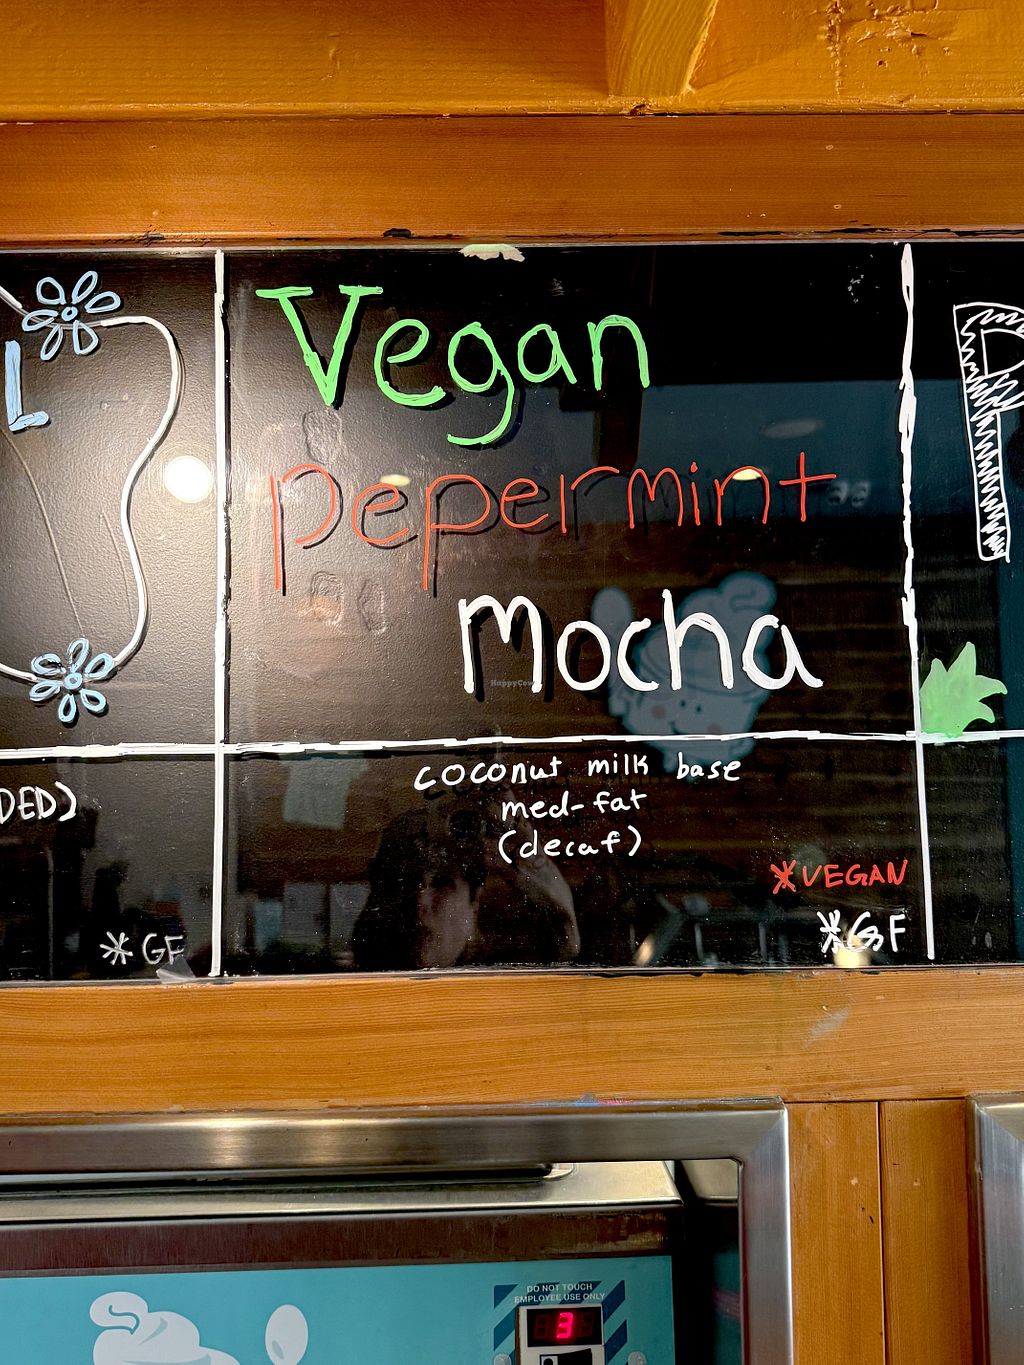 L
Vegan
pepermint
mocha
DED)
coconut milk base
med-fat
(decaf)
*VEGAN
*GF
*GF
HappyCow
DO NOT TOUCH
EMPLOYEE USE ONLY
3